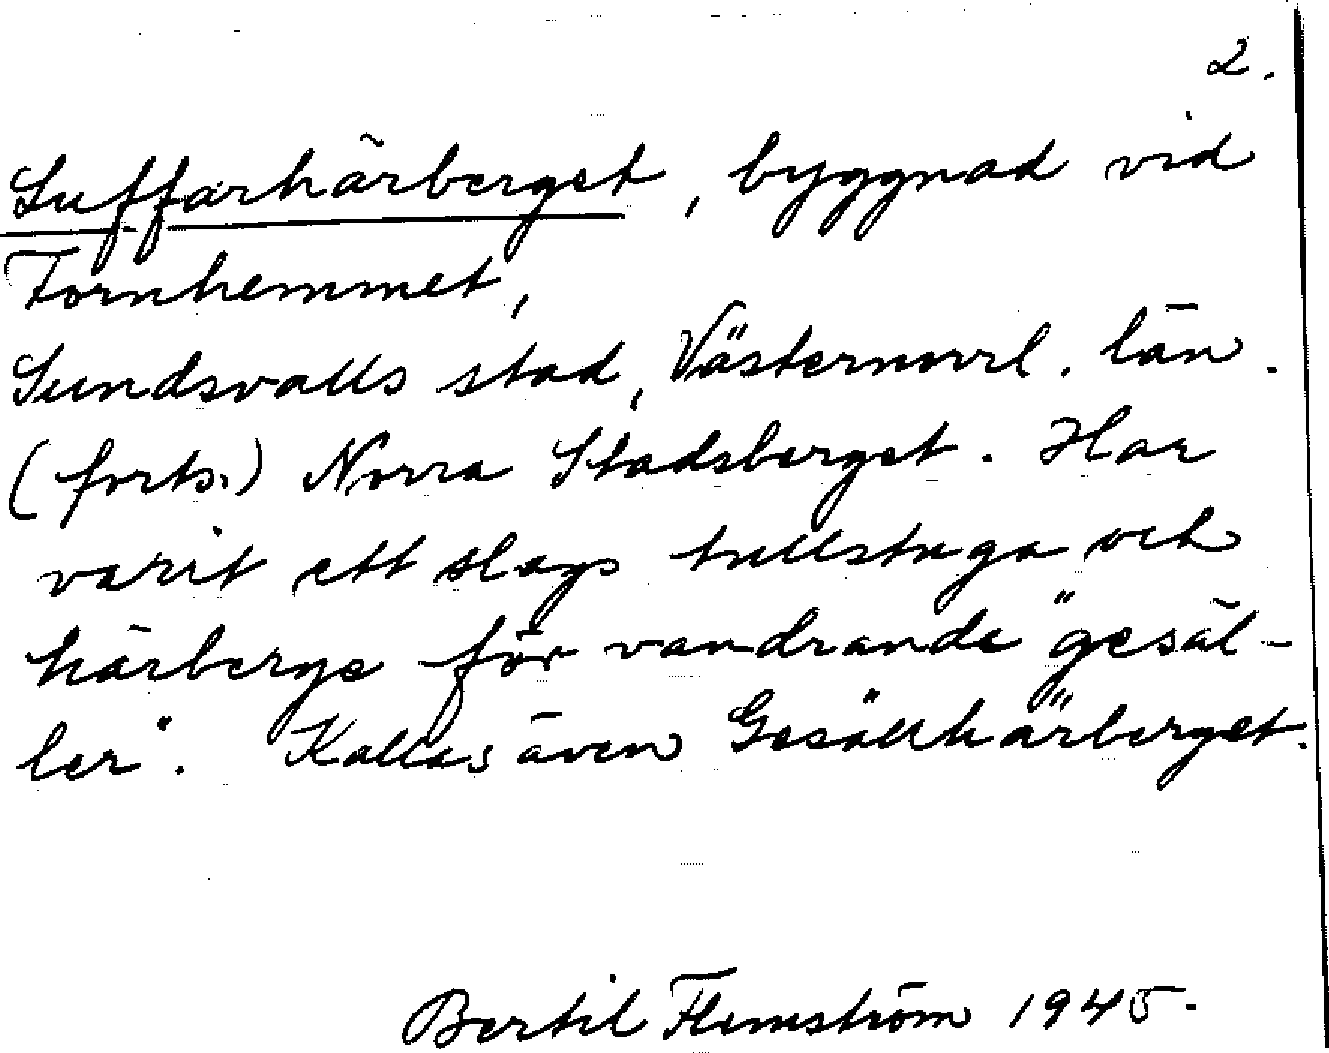 2.
Luffarhärberget, byggnad vid
Fornhemmet,
Sundsvalls stad, Västernorrl. län.
(forts.) Norra Stadsberget. Har
varit ett slags tullstuga och
härberge för vandrande "gesäl-
ler". Kallas även Gesällhärberget.
Bertil Flemström 1945.